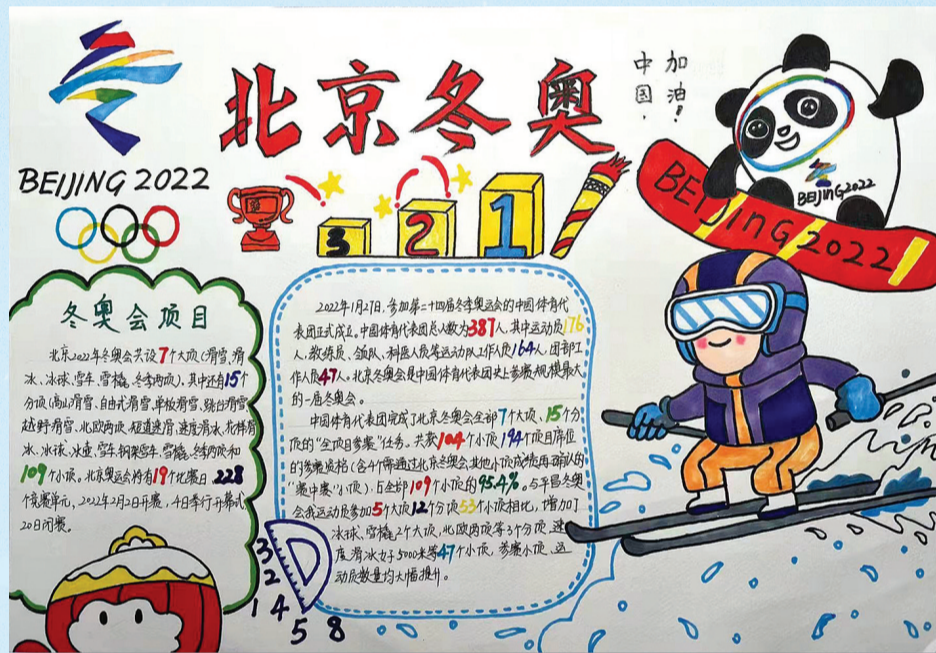 BEIJING 2022
北京冬奥
中国，
加油！
BEIJING 2022
BEIJING 2022
3 2 1
冬奥会项目
北京2022年冬奥会共设7个大项(滑雪、滑
冰、冰球、雪车、雪橇、冬季两项),其中还有15个
分项(高山滑雪、自由式滑雪、单板滑雪、跳台滑雪、
越野滑雪、北欧两项、短道速滑、速度滑冰、花样滑
冰、冰球、冰壶、雪车、钢架雪车、雪橇、冬季两项和
109个小项。北京奥运会将有19个比赛日228
个竞赛单元,2022年2月2日开赛,4日举行开幕式
20日闭赛。
2022年1月27日,参加第二十四届冬季奥运会的中国体育代
表团正式成立。中国体育代表团总人数为387人,其中运动员176
人,教练员、领队、科医人员等运动队工作人员164人,团部工
作人员47人。北京冬奥会是中国体育代表团史上参赛规模最大
的一届冬奥会。
中国体育代表团完成了北京冬奥会全部7个大项、15个分
项的“全项目参赛”任务。共获104个小项194个项目席位
的参赛资格(含4个需通过北京冬奥会其他小项成绩再确认的
“赛中赛”小项),占全部109个小项的95.4%。与平昌冬奥
会我运动员参加5个大项12个分项53个小项相比,增加了
冰球、雪橇2个大项,北欧两项等3个分项,速
度滑冰女子5000米等47个小项,参赛小项、运
动员数量均大幅提升。
3
2
1 4
5 8